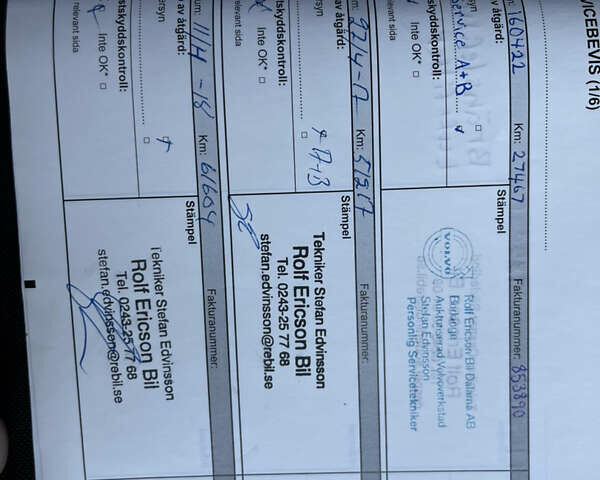 VICEBEVIS (1/6)
160422 Km: 27467 Fakturanummer: 853890
av åtgärd: Stämpel
Service A+B
VOLVO
Rolf Ericson Bil Dalarna AB
Borlänge
Auktoriserad Volvoverkstad
Stefan Edvinsson
Personlig Servicetekniker
tskyddskontroll:
Inte OK*
relevant sida
Km: 51217 Fakturanummer:
av åtgärd: Stämpel
ersyn
A+B
Tekniker Stefan Edvinsson
Rolf Ericson Bil
Tel. 0243-25 77 68
stefan.edvinsson@rebil.se
stskyddskontroll:
Inte OK*
relevant sida
um: 11/4-18 Km: 61604 Fakturanummer:
av åtgärd: Stämpel
ersyn
Tekniker Stefan Edvinsson
Rolf Ericson Bil
Tel. 0243-25 77 68
stefan.edvinsson@rebil.se
stskyddskontroll:
Inte OK*
relevant sida